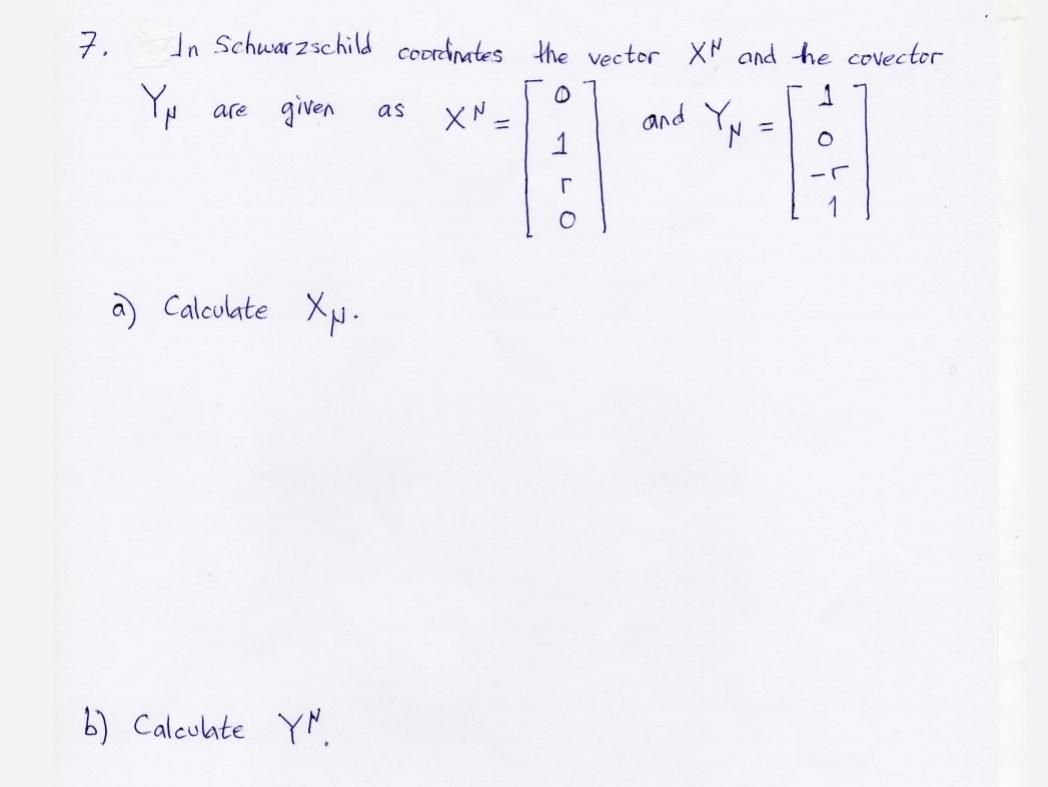 7. In Schwarzschild coordinates the vector X^μ and the covector
Y_μ are given as X^μ = [0 1 r 0] and Y_μ = [1 0 -r 1]
a) Calculate X_μ.
b) Calculate Y^μ.